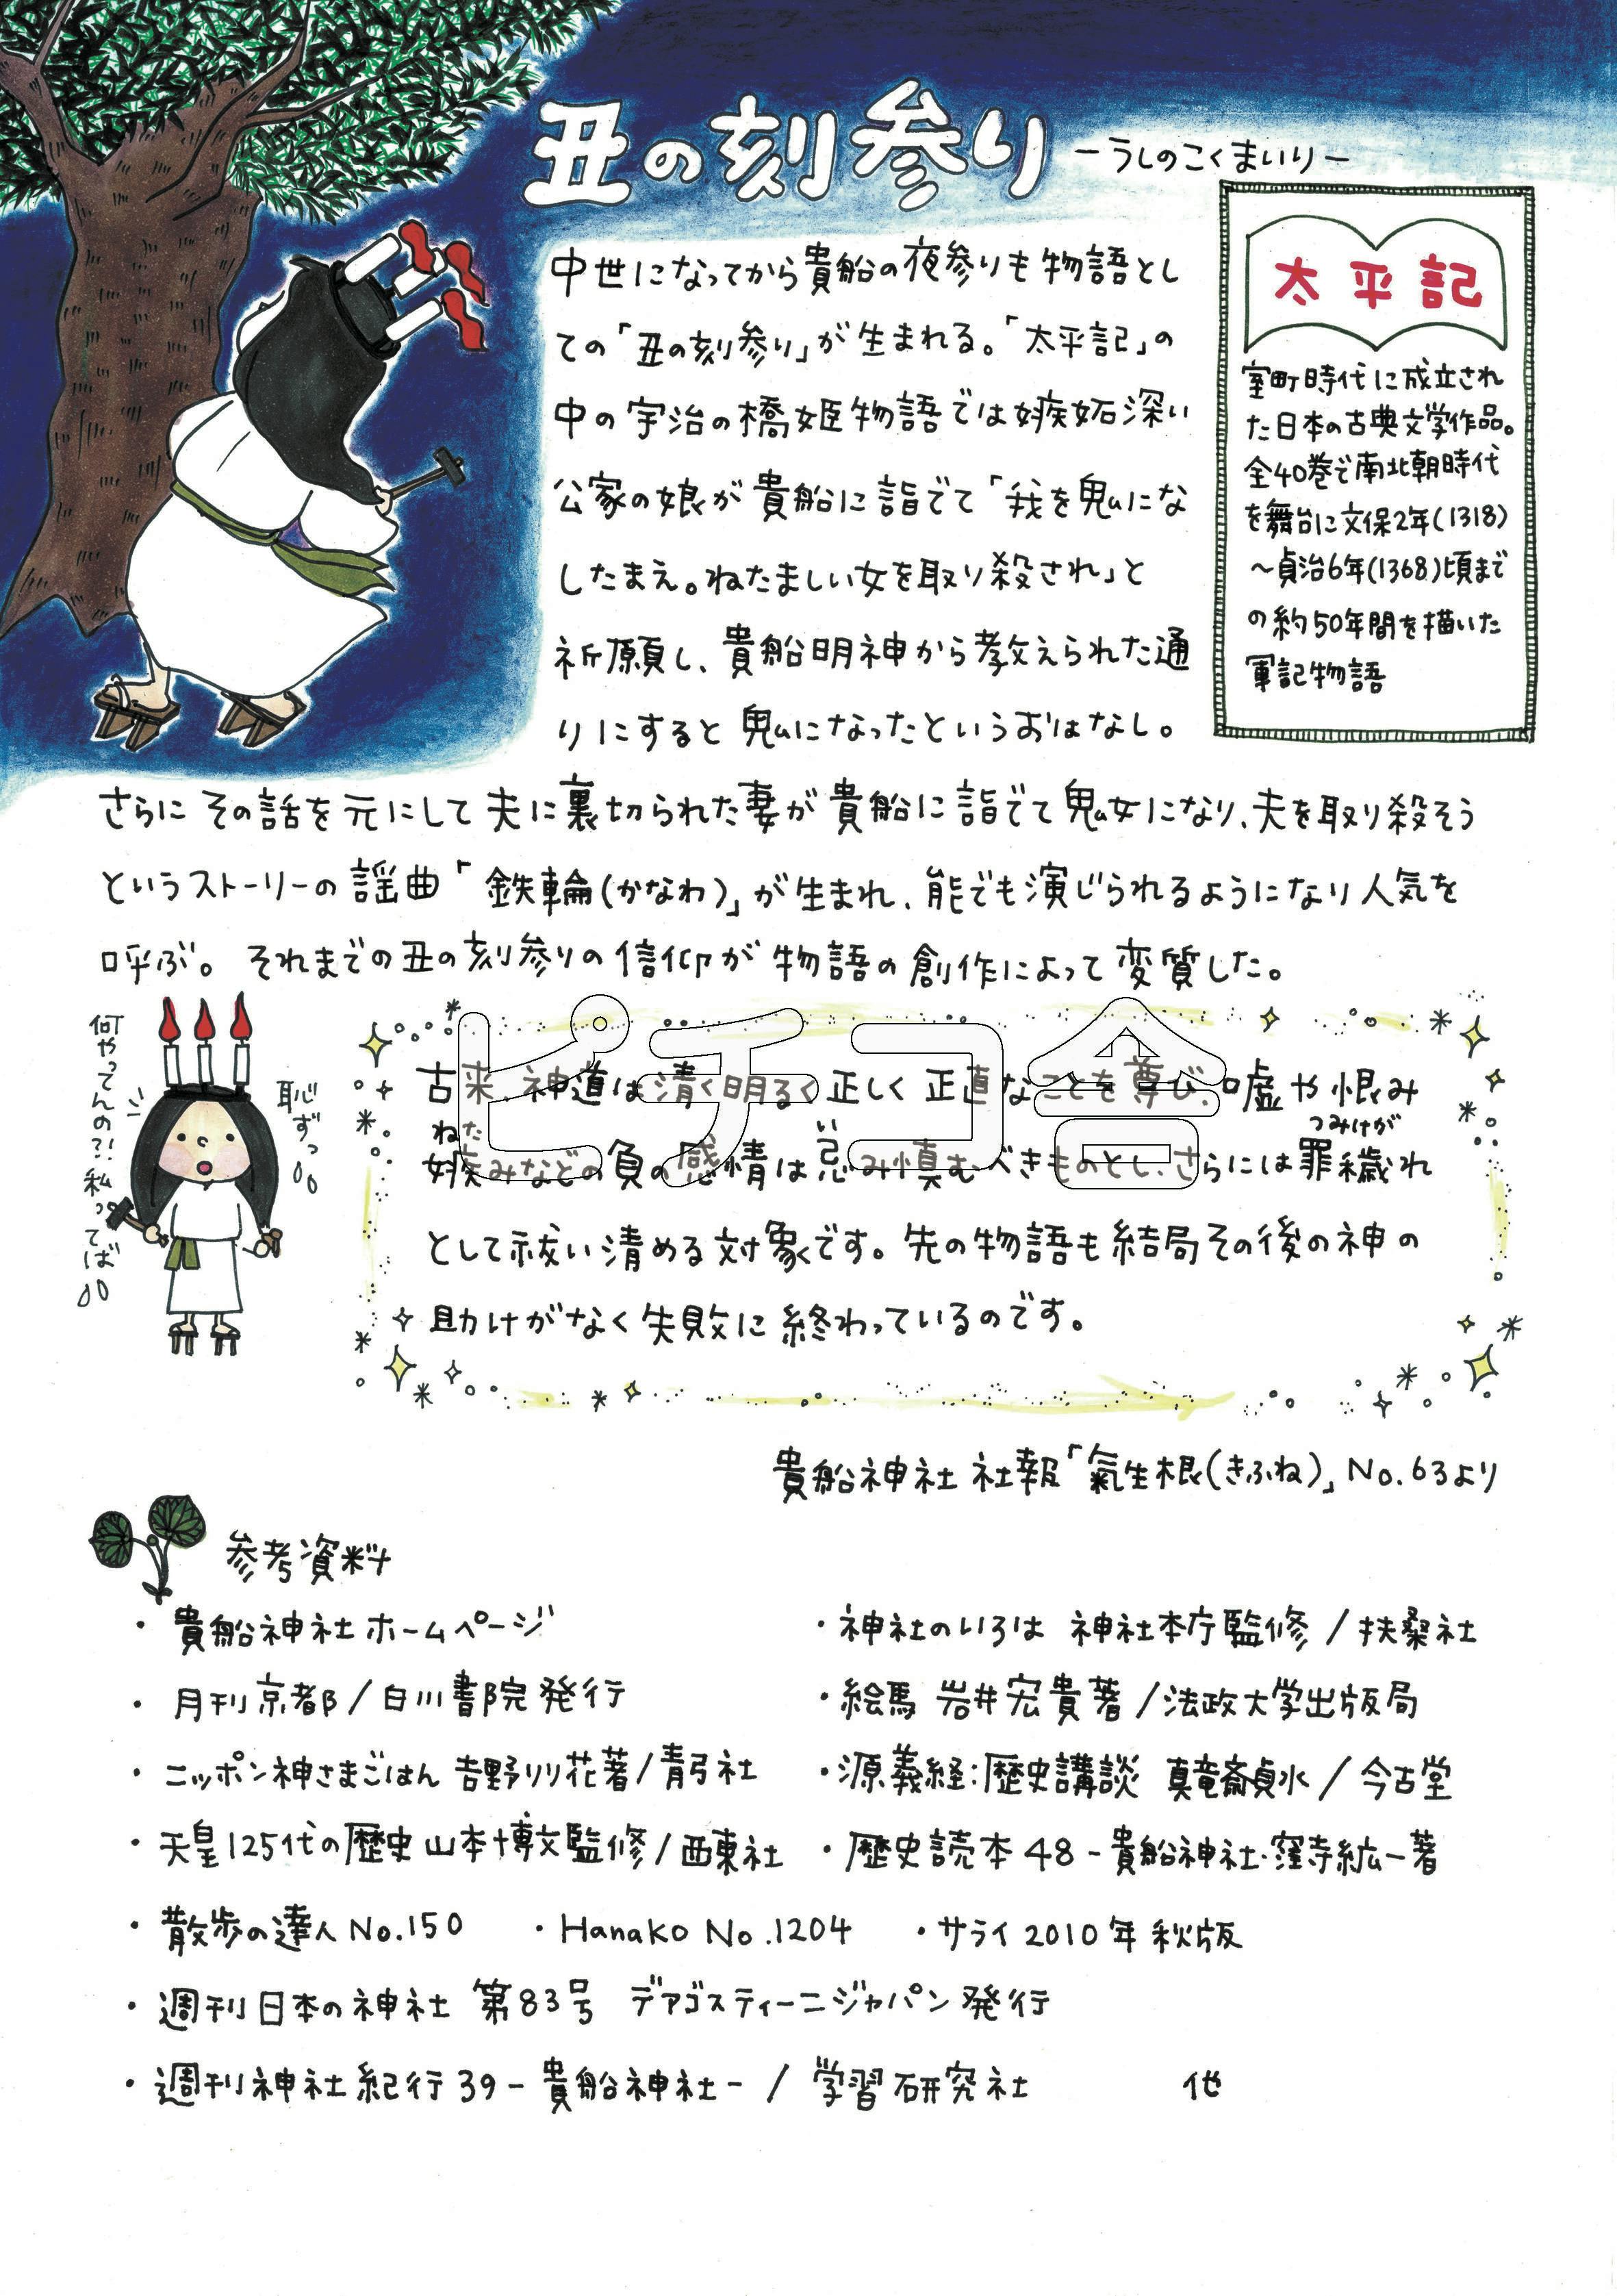 丑の刻参り
ーうしのこくまいりー
中世になってから貴船の夜参りも物語とし
ての「丑の刻参り」が生まれる。「太平記」の
中の宇治の橋姫物語では嫉妬深い
公家の娘が貴船に詣でて「我を鬼にな
したまえ。ねたましい女を取り殺され」と
祈願し、貴船明神から教えられた通
りにすると鬼になったというおはなし。
太平記
室町時代に成立され
た日本の古典文学作品。
全40巻で南北朝時代
を舞台に文保2年(1318)
～貞治6年(1368)頃まで
の約50年間を描いた
軍記物語
さらにその話を元にして夫に裏切られた妻が貴船に詣でて鬼女になり、夫を取り殺そう
というストーリーの謡曲「鉄輪(かなわ)」が生まれ、能でも演じられるようになり人気を
呼ぶ。それまでの丑の刻参りの信仰が物語の創作によって変質した。
何やってんの?!私ってば
恥ずっ
ピチコ舎
古来、神道は清く明るく正しく正直なことを尊び、嘘や恨み
ねた
い
つみけが
嫉みなどの負の感情は忌み慎むべきものとし、さらには罪穢れ
として祓い清める対象です。先の物語も結局その後の神の
助けがなく失敗に終わっているのです。
貴船神社 社報「氣生根(きふね)」No.63より
参考資料
・貴船神社ホームページ
・神社のいろは 神社本庁監修/扶桑社
・月刊京都/白川書院発行
・絵馬 岩井宏實著/法政大学出版局
・ニッポン神さまごはん 吉野りり花著/青弓社
・源義経:歴史講談 真竜斎貞水/今古堂
・天皇125代の歴史 山本博文監修/西東社
・歴史読本48-貴船神社・窪寺紘一著
・散歩の達人No.150 ・Hanako No.1204 ・サライ2010年秋版
・週刊日本の神社 第83号 デアゴスティーニジャパン発行
・週刊神社紀行39-貴船神社-/学習研究社 他